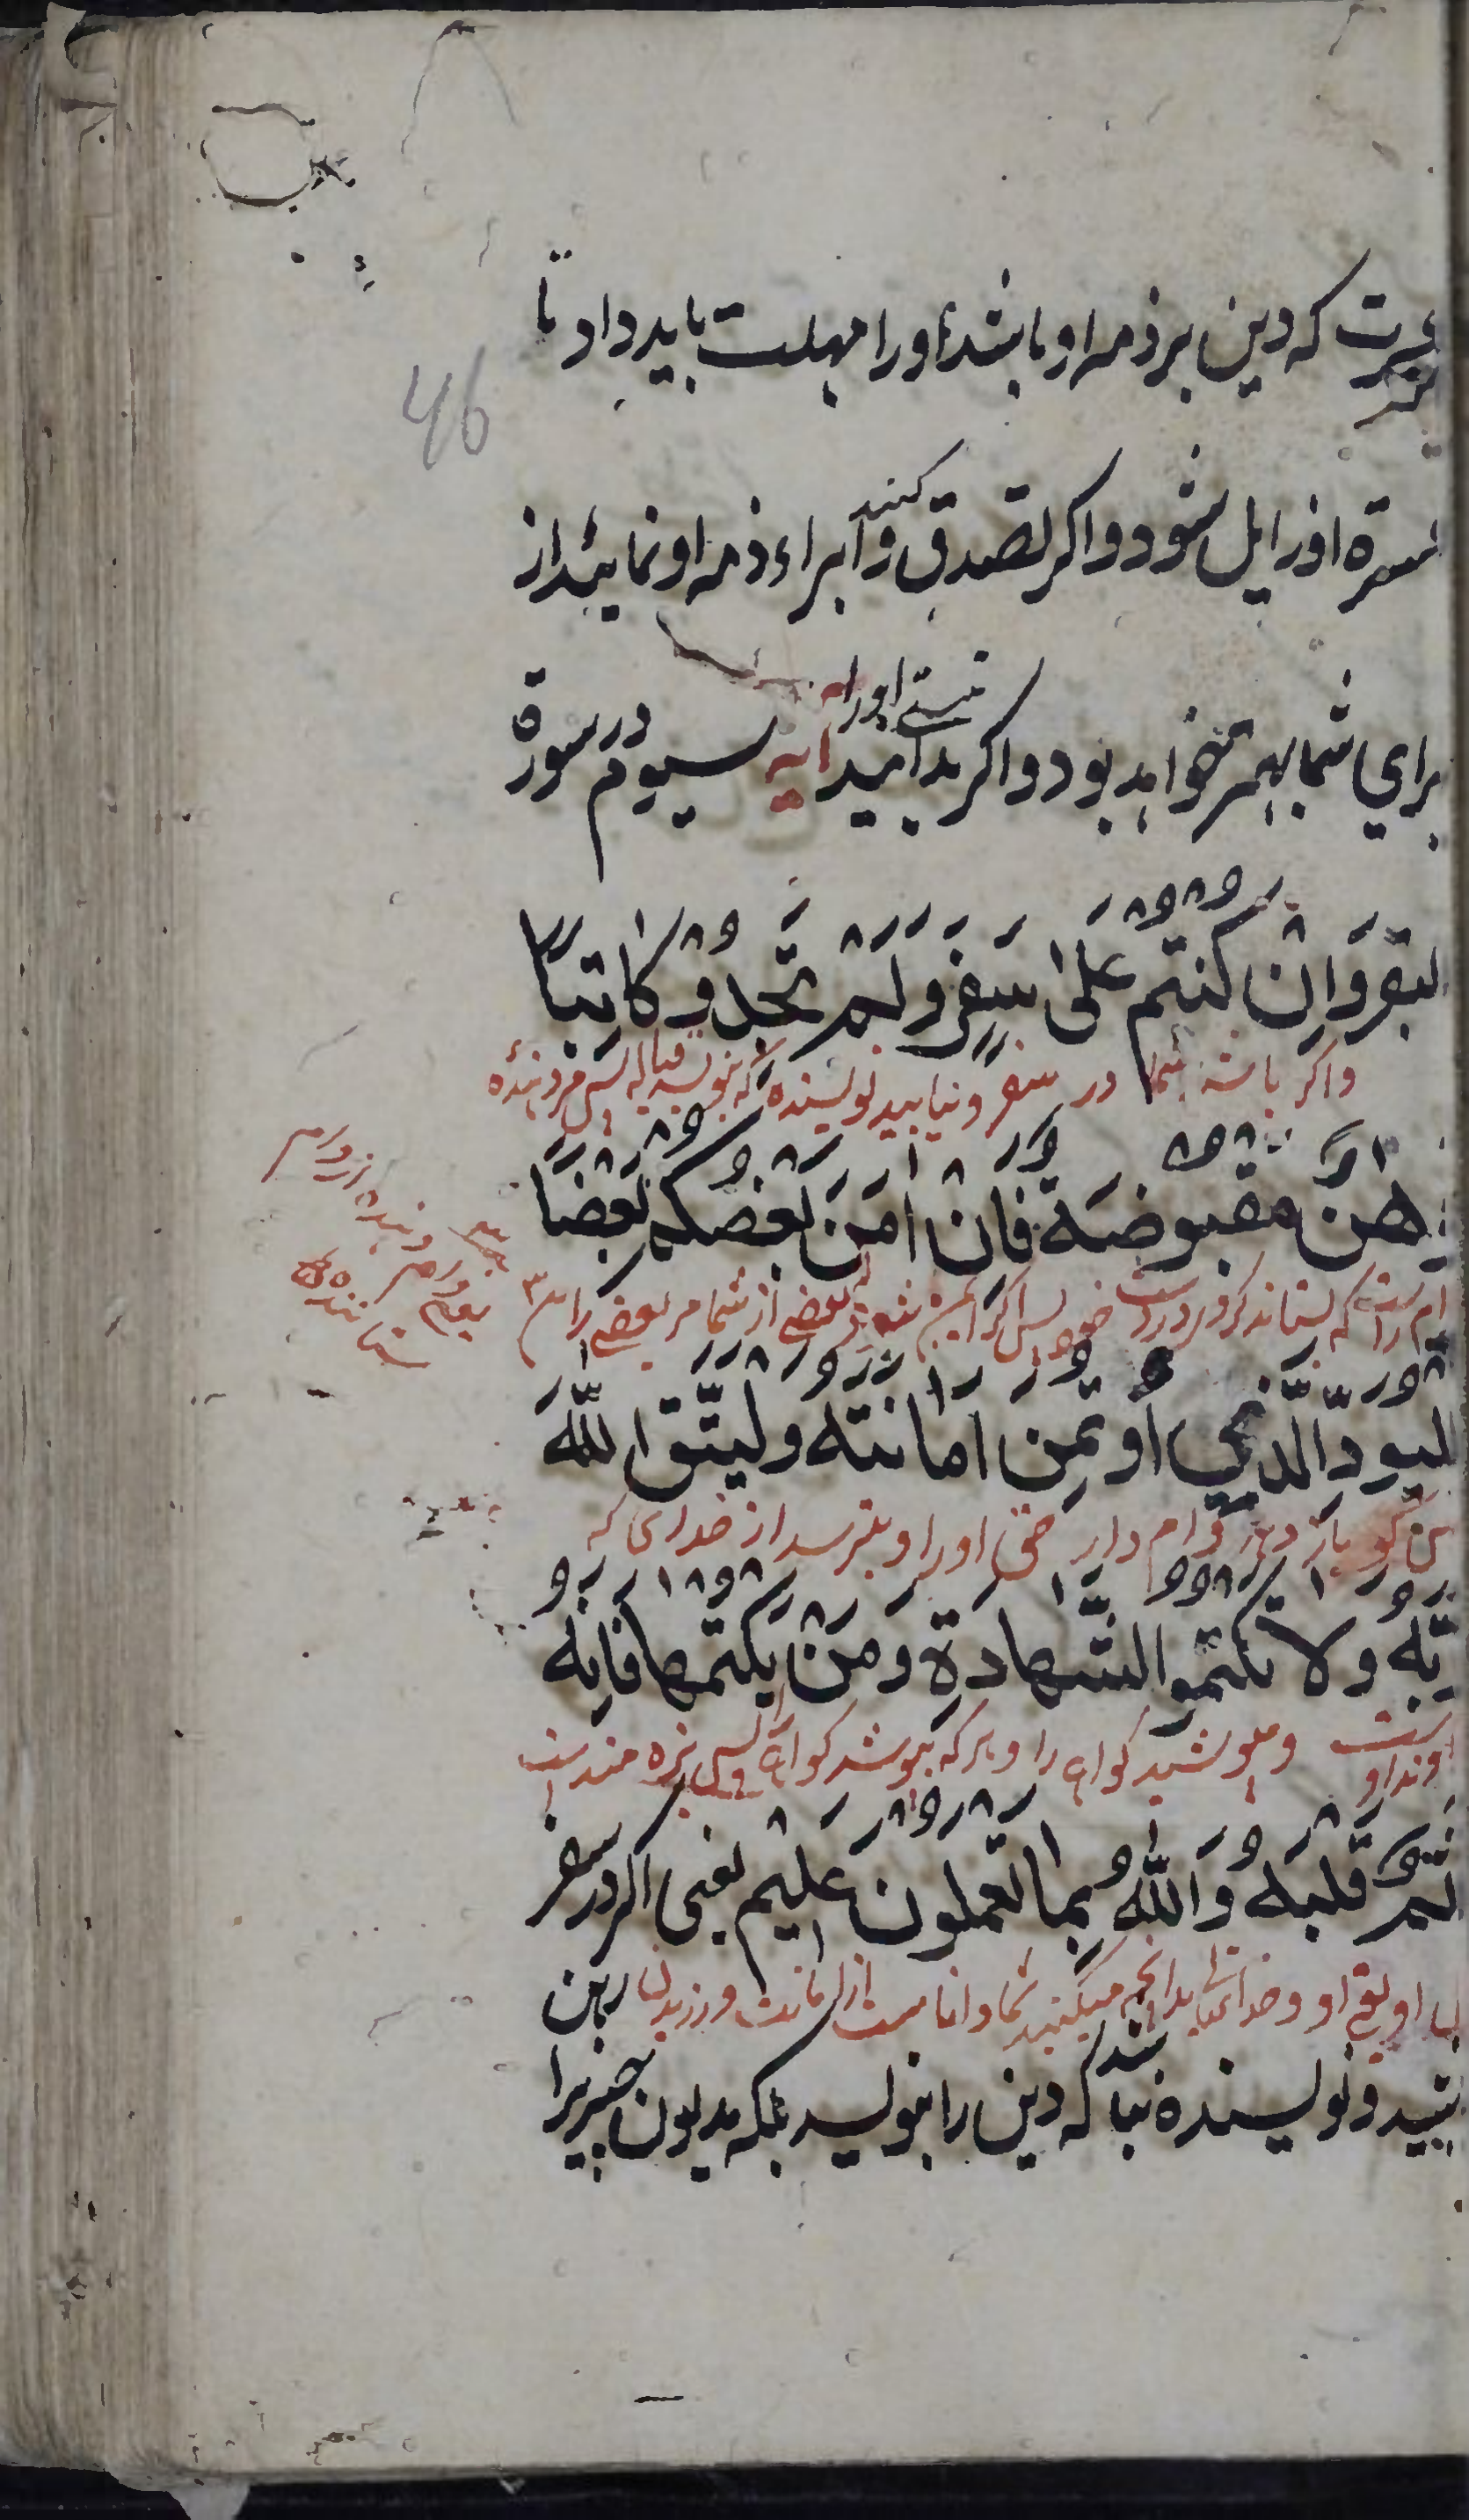 عسرت که دین بر ذمه او باشد او را مهلت باید داد تا
عسرة او زایل شود و اگر تصدق کنند و ابراء ذمه او نمائید از
برای شما بهتر خواهد بود و اگر بدانید نیتی او را آیه سیوم در سورة
البقر وَاِنْ كُنْتُمْ عَلىٰ سَفَرٍ وَلَمْ تَجِدُوْ كَاتِبًا
و اگر باشید شما در سفر و نیابید نویسنده که بنویسد قباله پس مر دهنده
فرِهٰنٌ مَقْبُوضَةٌ فَاِنْ اَمِنَ بَعْضُكُمْ بَعْضًا
وام راست که بستاند گرو در دست خود پس اگر ایمن شود بعضی از شما مر بعضی را
فلْيُؤَدِّ الَّذِي اؤْتُمِنَ اَمَانَتَهُ وَلْيَتَّقِ اللّٰهَ
پس گو باز دهد وام دار حق او را و بترسد از خدای که
رَبَّهُ وَلَا تَكْتُمُوا الشَّهَادَةَ وَمَنْ يَكْتُمْهَا فَاِنَّهُ
خداوند اوست و مپوشید گواهی را و هر که بپوشد گواهی پس بزه مند است
اٰثِمٌ قَلْبُهُ وَاللّٰهُ بِمَا تَعْمَلُونَ عَلِيمٌ یعنی اگر در سفر
دل او و خدای تعالی بدانچه میکنید شما داناست از امانت ورزیدن
باشید و نویسنده نباشد که دین را بنویسد بلکه مدیون چیزیرا رهن
46